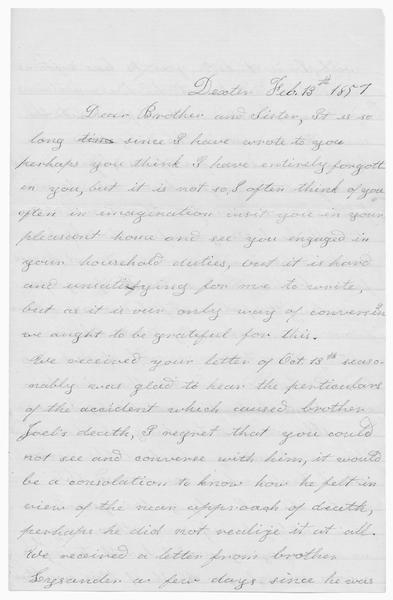 Dexter Feb. 13th 1857
Dear Brother and Sister, It is so
long time since I have wrote to you
perhaps you think I have entirely forgott
en you, but it is not so, I often think of you
often in imagination visit you in your
pleasant home and see you engaged in
your household duties, but it is hard
and unsatisfying for me to write,
but as it is our only way of conversin
we aught to be grateful for this.
We received your letter of Oct 13th seaso-
nably was glad to hear the perticulars
of the accident which caused brother
Joel's death, I regret that you could
not see and converse with him, it would
be a consolation to know how he felt in
view of the near approach of death,
perhaps he did not realize it at all.
We received a letter from brother
Lysander a few days since he was